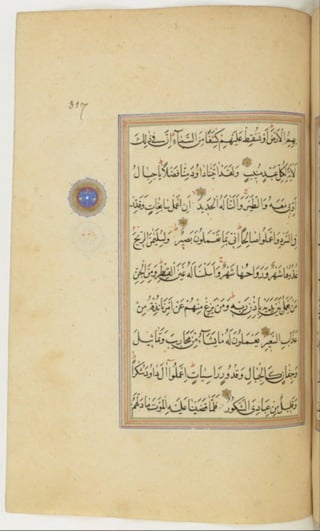 317
بهم الارض او نسقط عليهم كسفا من السماء ان في ذلك
لآية لكل عبد منيب ولقد اتينا داود منا فضلا يا جبال
اوبي معه والطير والنا له الحديد ان اعمل سابغات وقدر
في السرد واعملوا صالحا اني بما تعملون بصير ولسليمن الريح
غدوها شهر ورواحها شهر واسلنا له عين القطر ومن الجن
من يعمل بين يديه باذن ربه ومن يزغ منهم عن امرنا نذقه من
عذاب السعير يعملون له ما يشاء من محاريب وتماثيل
وجفان كالجواب وقدور راسيات اعملوا ال داود شكرا
وقليل من عبادي الشكور فلما قضينا عليه الموت ما دلهم